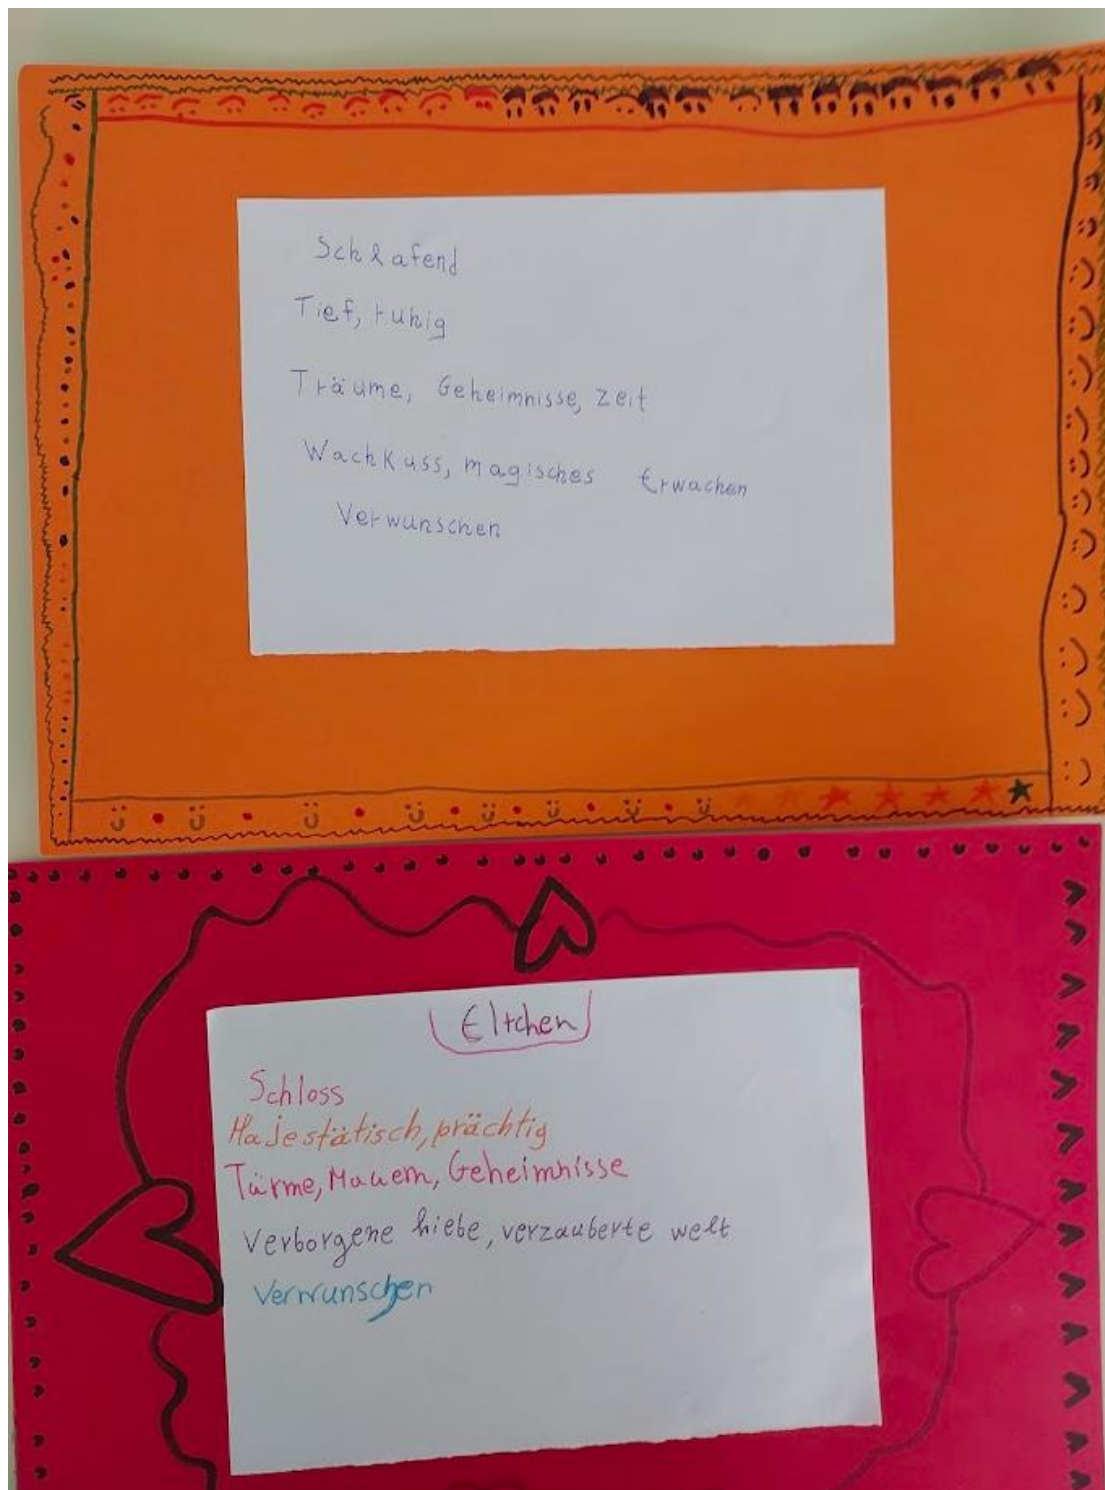 Schlafend
Tief, ruhig
Träume, Geheimnisse, Zeit
Wachkuss, magisches Erwachen
Verwunschen
Elfchen
Schloss
Majestätisch, prächtig
Türme, Mauern, Geheimnisse
Verborgene Liebe, verzauberte welt
Verwunschen